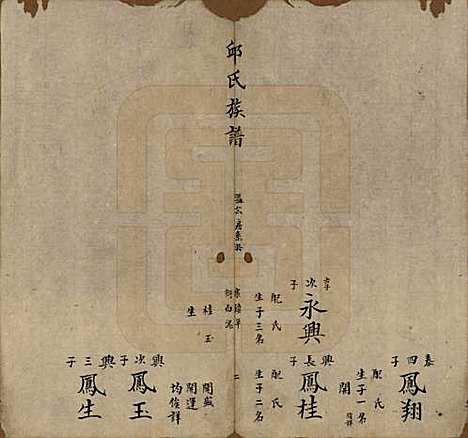 邱氏族譜
次子
永興
配氏
生子三名
桂玉
生
泰四子
鳳翔
配氏
生子一名
開
興長子
鳳桂
配氏
生子二名
興次子
鳳玉
開盛
開運
均後詳
興三子
鳳生
二